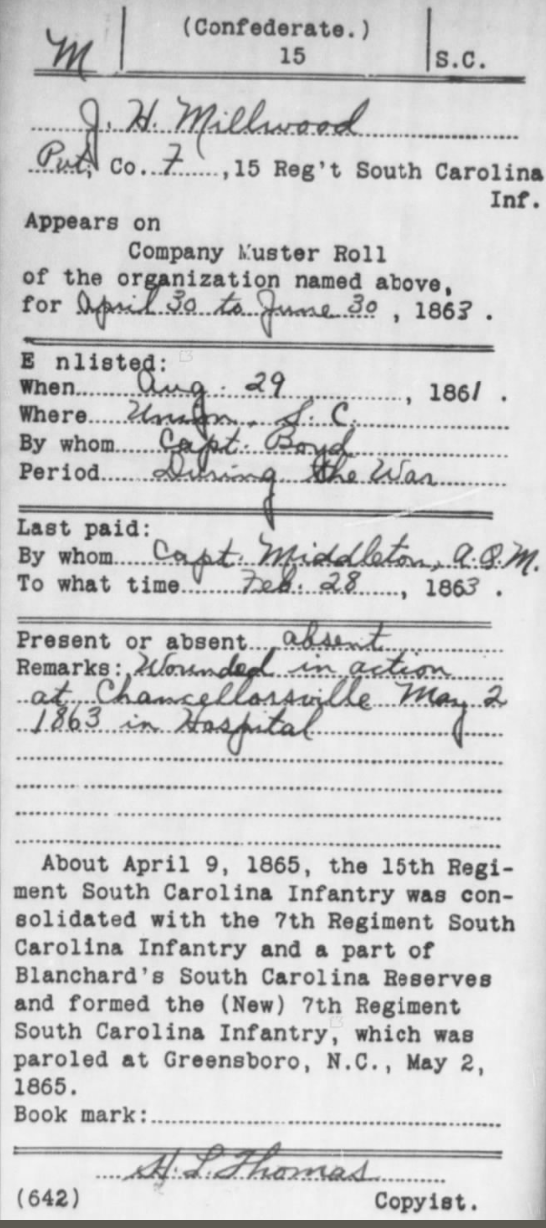 (Confederate.)
M 15 S.C.
J. H. Millwood
Pvt, Co. F, 15 Reg't South Carolina
Inf.
Appears on
Company Muster Roll
of the organization named above,
for April 30 to June 30, 1863.
E nlisted:
When Aug. 29, 1861.
Where Union, S. C.
By whom Capt. Boyd
Period During the War
Last paid:
By whom Capt. Middleton, A.Q.M.
To what time Feb. 28, 1863.
Present or absent absent
Remarks: Wounded in action
at Chancellorsville May 2
1863 in Hospital
About April 9, 1865, the 15th Regi-
ment South Carolina Infantry was con-
solidated with the 7th Regiment South
Carolina Infantry and a part of
Blanchard's South Carolina Reserves
and formed the (New) 7th Regiment
South Carolina Infantry, which was
paroled at Greensboro, N.C., May 2,
1865.
Book mark:
H. L. Thomas
(642) Copyist.